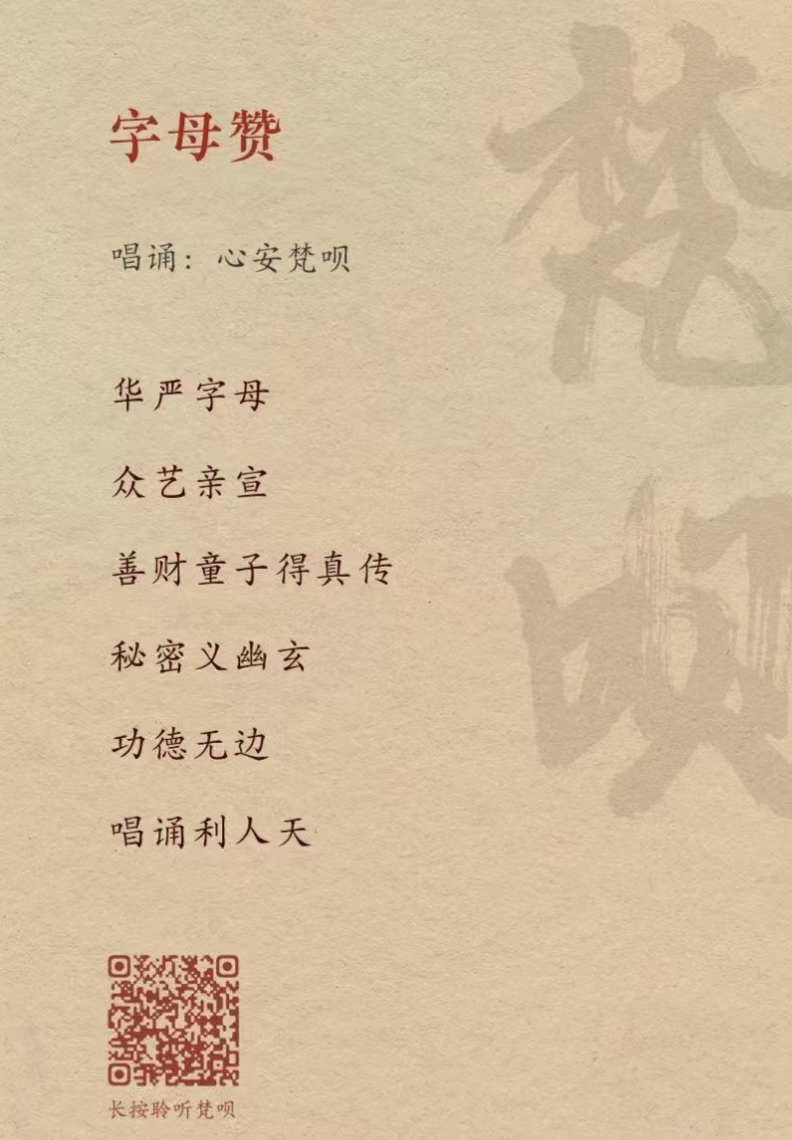 字母赞
唱诵：心安梵呗
华严字母
众艺亲宣
善财童子得真传
秘密义幽玄
功德无边
唱诵利人天
长按聆听梵呗
梵呗